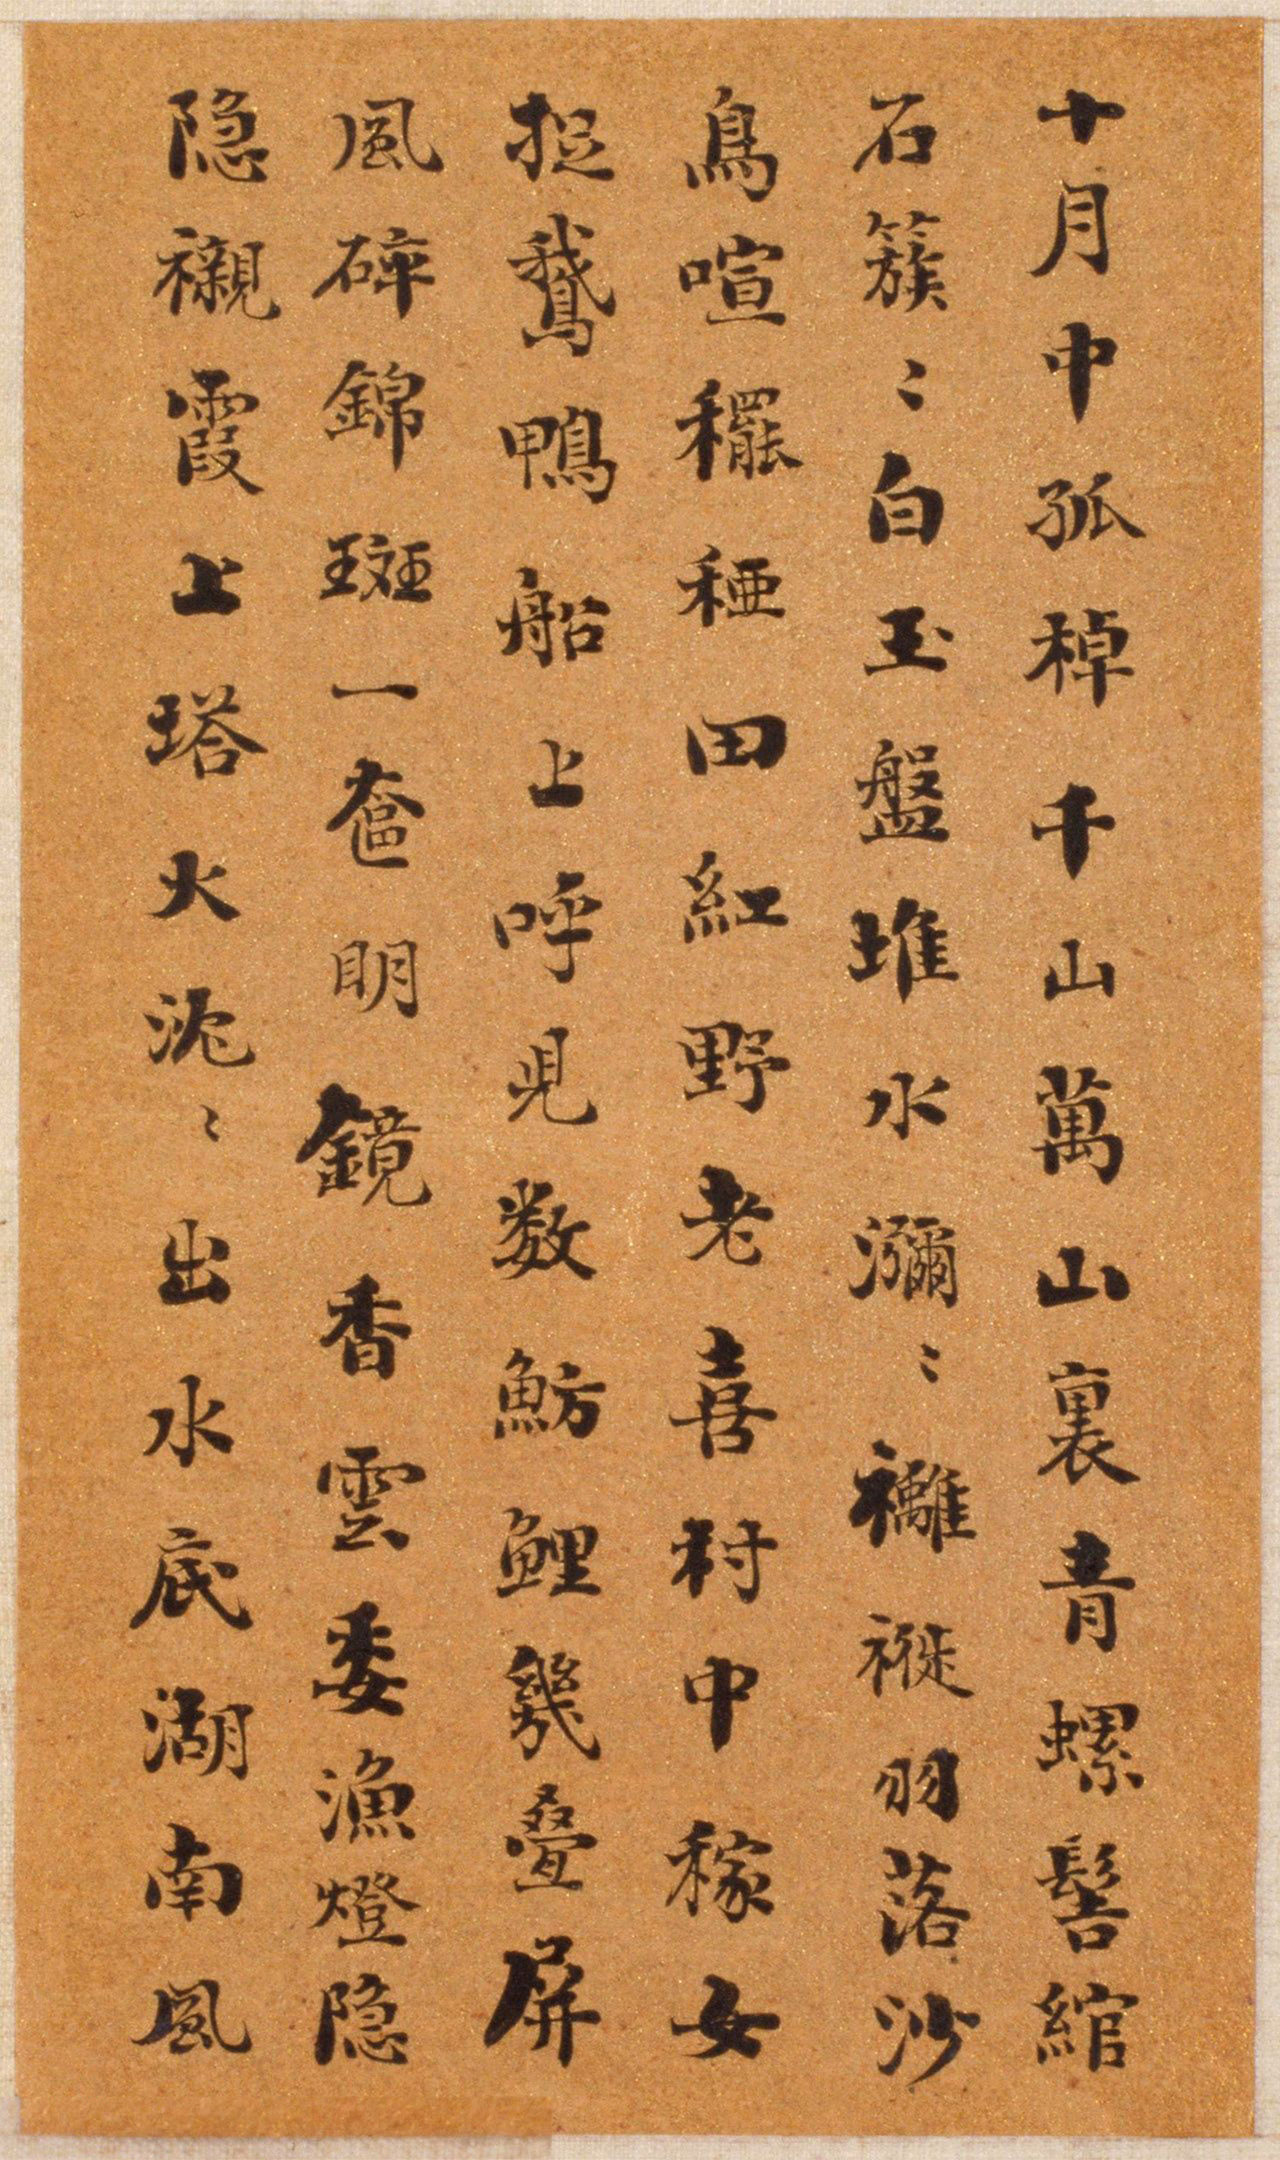 十月中孤棹千山萬山裏青螺髻綰
石簇〻白玉盤堆水瀰〻襹褷羽落沙
鳥喧䆉稏田紅野老喜村中稼女
捉鵞鴨船上呼児数魴鯉幾疊屏
風碎錦斑一奩明鏡香雲委漁燈隐
隐襯霞上塔火沈〻出水底湖南風